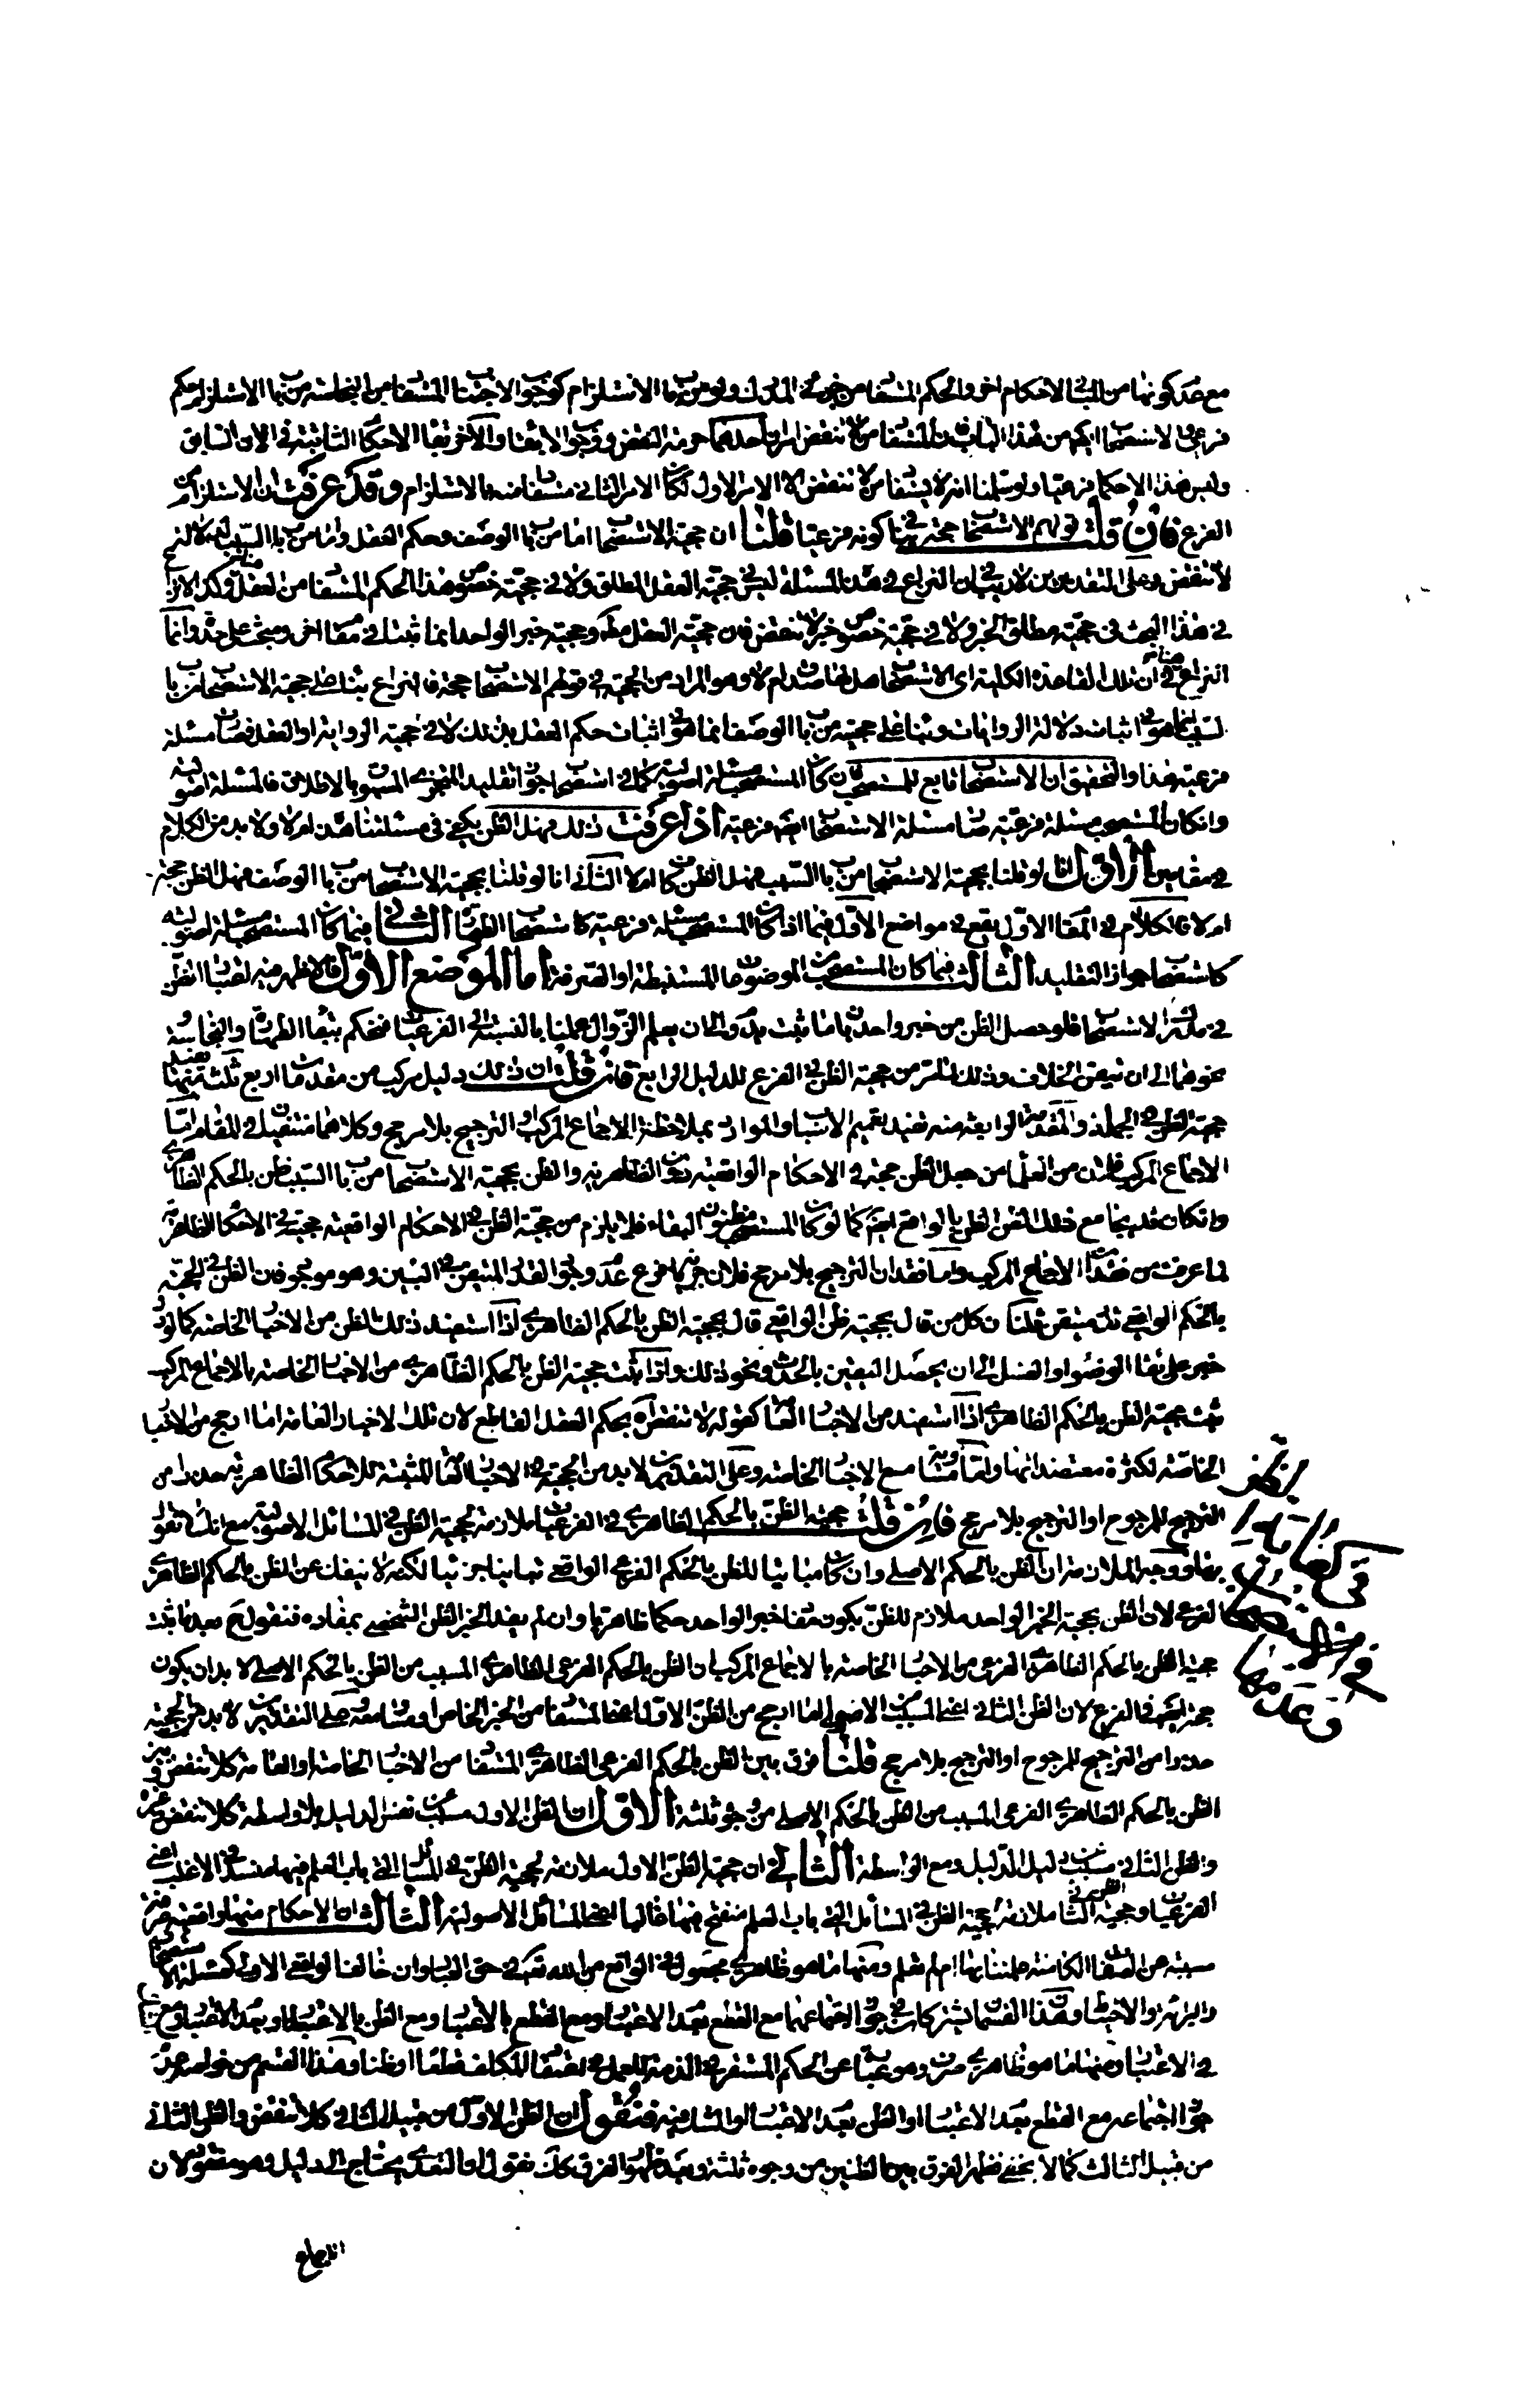 مع عدم كونها من المسائل الاحكام اخر والحكم المستفاد من جزئى المدرك ولو من باب الاستلزام كوجوب الاجتناب المستفاد من النجاسة من باب الاستلزام حكم
فرعى الاستصحاب ايضا من هذا الباب فان المستفاد من لا تنقض امران احدهما حرمة النقض ووجوب الابقاء والاخر بقاء الاحكام الثابتة فى الان السابق
وليس هذا الاحكام فرعيا ولو سلمنا انه لا يستفاد من لا تنقض الا الامر الاول لكان الامر الثانى مستفادا منه بالاستلزام وقد عرفت ان الاستلزام من
الفرع فان قلت قولهم الاستصحاب حجة ينافى كونه فرعيا قلنا ان حجية الاستصحاب اما من باب الوصف وحكم العقل واما من باب السبب
لا تنقض وعلى التقديرين لا ريب فى ان النزاع فى هذه المسئلة ليس فى حجية العقل المطلق ولا فى حجية خصوص هذا الحكم المستفاد من العقل وكذا
فى هذا البحث فى حجية مطلق الخبر ولا فى حجية خصوص خبر لا تنقض فان حجية العقل مط وحجية خبر الواحد انما ثبتا فى مقام اخر ومبحث على حدة وانما
النزاع فى ان تلك القاعدة الكلية اى الاستصحاب هل لها مدرك ام لا وهو المراد من الحجية فى قولهم الاستصحاب حجة فالنزاع بناء على حجية الاستصحاب من باب
السبب انما هو فى اثبات دلالة الروايات وبناء على حجيته من باب الوصف انما هو فى اثبات حكم العقل بذلك لا فى حجية الرواية او العقل فصار مسئلة
فرعية هذا والتحقيق ان الاستصحاب تابع للمستصحب فان كان المستصحب مسئلة اصولية كما فى استصحاب جواز تقليد المتجزى المسبوق بالاطلاق فالمسئلة اصولية
وان كان المستصحب مسئلة فرعية صار مسئلة الاستصحاب ايضا فرعية اذا عرفت ذلك فهل الظن يكفى فى مسئلتنا هذه ام لا ولا بد من الكلام
فى مقامين الاول انا لو قلنا بحجية الاستصحاب من باب السبب فهل الظن كاف ام لا الثانى انا لو قلنا بحجية الاستصحاب من باب الوصف فهل الظن حجة
ام لا فالكلام فى المقام الاول يقع فى مواضع الاول فيما اذا كان المستصحب مسئلة فرعية كاستصحاب الطهارة الثانى فيما كان المستصحب مسئلة اصولية
كاستصحاب جواز التقليد الثالث فيما كان المستصحب من الموضوعات المستنبطة او الصرفة اما الموضع الاول فالاظهر فيه اعتبار الظن
فى مدرك الاستصحاب فلو حصل الظن من خبر واحد بان ما ثبت يدوم الى ان يعلم الزوال عملنا بالنسبة الى الفرعيات فنحكم ببقاء الطهارة والنجاسة
نحوهما الى ان نتيقن الخلاف وذلك لما مر من حجية الظن فى الفرع للدليل الرابع فان قلت ان ذلك دليل مركب من مقدمات اربع ثلثة منها تفيد
حجية الظن فى الجملة والمقدمة الرابعة منه تفيد تعميم الاسباب والموارد بملاحظة الاجماع المركب او الترجيح بلا مرجح وكلاهما منتفيان فى المقام اما
الاجماع المركب فلان من العلماء من جعل الظن حجة فى الاحكام الواقعية دون الظاهرية والظن بحجية الاستصحاب من باب السبب ظن بالحكم الظاهرى
وان كان قد يجامع ذلك الظن الظن بالواقع ايضا كما لو كان المستصحب مظنون البقاء فلا يلزم من حجية الظن فى الاحكام الواقعية حجيته فى الاحكام الظاهرية
لما عرفت من فقدان الاجماع المركب واما فقدان الترجيح بلا مرجح فلان جريانه فرع عدم وجود القدر المتيقن فى البين وهو موجود فان الظن فى حجية
بالحكم الواقعى قدر متيقن قلنا ان كل من قال بحجية ظن الواقعى قال بحجية الظن بالحكم الظاهرى اذا استفيد ذلك الظن من الاخبار الخاصة كما لو دل
خبر على بقاء الوضوء او الغسل الى ان يحصل اليقين بالحدث ونحو ذلك واذا ثبت حجية الظن بالحكم الظاهرى من الاخبار الخاصة بالاجماع المركب
ثبت حجية الظن بالحكم الظاهرى اذا استفيد من الاخبار العامة كقوله لا تنقض اه بحكم العقل القاطع لان تلك الاخبار العامة اما ارجح من الاخبار
الخاصة لكثرة معتضداتها واما متساوية مع الاخبار الخاصة وعلى التقديرين لا بد من الحجية فى الاخبار العامة المثبتة للاحكام الظاهرية حذرا من
الترجيح للمرجوح او الترجيح بلا مرجح فان قلت حجية الظن بالحكم الظاهرى فى الفرعيات ملازمة لحجية الظن فى المسائل الاصولية مع انك لا تقول
بها ووجه الملازمة ان الظن بالحكم الاصلى وان كان مباينا للظن بالحكم الفرعى الواقعى تباينا جزئيا لكنه لا ينفك عن الظن بالحكم الظاهرى
الفرعى لان الظن بحجية الخبر الواحد ملازم للظن بكون مفاد خبر الواحد حكما ظاهريا وان لم يفد الخبر الظن الشخصى بمفاده فنقول ح بعد ما ثبت
حجية الظن بالحكم الظاهرى الفرعى من الاخبار الخاصة بالاجماع المركب ان الظن بالحكم الفرعى الظاهرى المسبب من الظن بالحكم الاصلى لا بد ان يكون
حجة ايضا فى الفرع لان الظن الثانى اعنى المسبب من الاصولى اما ارجح من الظن الاول اعنى المستفاد من الخبر الخاص او متساوية على التقديرين لا بد من حجيته
حذرا من الترجيح للمرجوح او الترجيح بلا مرجح قلنا فرق بين الظن بالحكم الفرعى الظاهرى المستفاد من الاخبار الخاصة او العامة كلا تنقض وبين
الظن بالحكم الظاهرى الفرعى المسبب من الظن بالحكم الاصلى من وجوه ثلثة الاول ان الظن الاول مسبب من نفس الدليل بلا واسطة كلا تنقض وغيره
والظن الثانى مسبب من دليل الدليل ومع الواسطة الثانى ان حجية الظن الاول ملازمة لحجية الظن فى المسائل التى باب العلم فيها منسد فى الاغلب اعنى
الفرعيات وحجية الثانى ملازمة لحجية الظن فى المسائل التى باب العلم منفتح فيها غالبا اعنى المسائل الاصولية الثالث ان الاحكام منها واقعية صرفة
مسببة من الصفات الكامنة علمنا بها ام لم نعلم ومنها ما هو ظاهرى مجعول فى الواقع من الله تعالى فى حق العباد وان خالفنا الواقعى الاولى كمسئلة الاستصحاب
والبرائة والاحتياط وهذان القسمان يشتركان فى جواز اجتماعهما مع القطع بعدم الاعتبار ومع القطع بالاعتبار ومع الظن بالاعتبار وبعدم الاعتبار ومع
فى الاعتبار ومنها ما هو ظاهرى صرف وهو عبارة عن الحكم المستقر فى الذمة للعمل فى اعتقاد المكلف قطعا او ظنا وهذا القسم من خواصه عدم
جواز اجتماعه مع القطع بعدم الاعتبار او الظن بعدم الاعتبار او الشك فيه فنقول ان الظن الاول من قبيل الثانى كلا تنقض والظن الثانى
من قبيل الثالث كما لا يخفى فظهر الفرق بين الظنين من وجوه ثلثة وبعد ظهور الفرق كان نقول ان التعدى يحتاج الى الدليل وهو مفقود لان
الاجماع